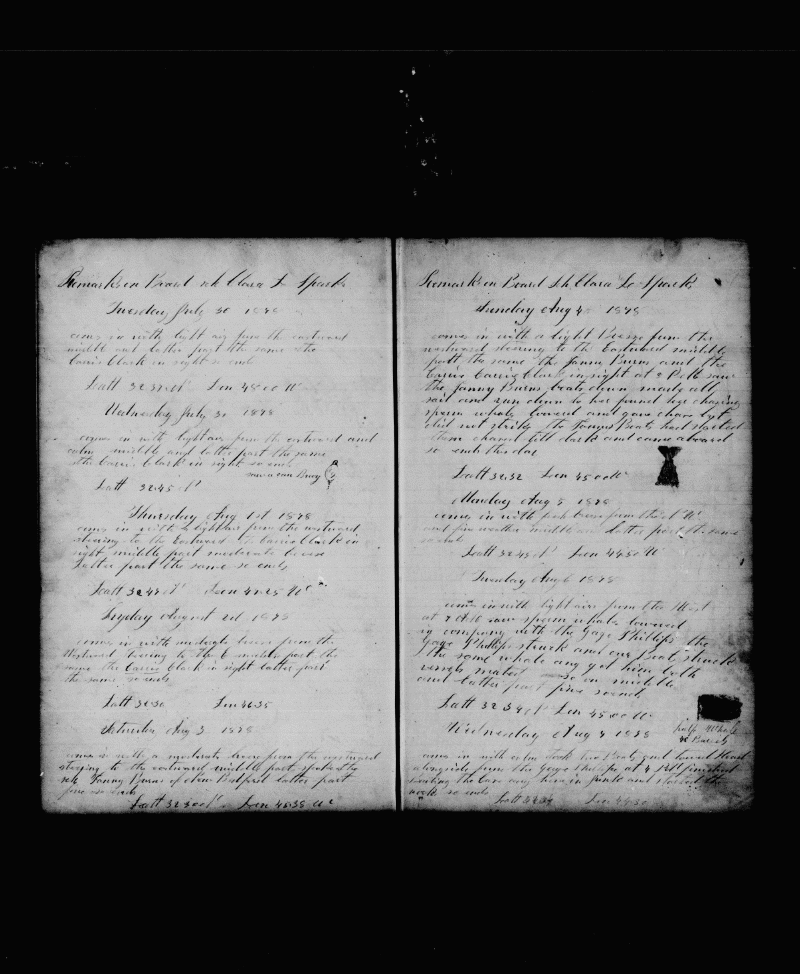 Remarks on Board sch Clara L Sparks
Tuesday July 30 1878
comes in with light air from the eastward
middle and latter part the same the
Carrie Clark in sight so ends
Latt 32.37 N Lon 48.00 W
Wednesday July 31 1878
comes in with light airs from the eastward and
calm middle and latter part the same
the Carrie Clark in sight so ends
Latt 32.45 N
Thursday Aug 1st 1878
comes in with light airs from the westward
steering to the Eastward the Carrie Clark in
sight middle part moderate breeze
Latter part the same so ends
Latt 32.42 N Lon 47.25 W
Fryday August 2d 1878
comes in with moderate breeze from the
Westward steering to the E middle part the
same the Carrie Clark in sight latter part
the same so ends
Latt 32.30 Lon 46.35
Saturday Aug 3 1878
comes in with a moderate breeze from the westward
steering to the eastward middle part spoke the
sch Fanny Burns of New Bedford latter part
fine so ends
Latt 32.30 N Lon 45.38 W
Remarks on Board Sch Clara L Sparks
Sunday Aug 4 1878
comes in with a light Breeze from the
westward steering to the Eastward middle
part the same the Fanny Burns and the
Carrie Clark in sight at 2 P M saw
the Fanny Burns boats down made all
sail and run down to her found her chasing
sperm whale lowered and gave chase but
did not strike the Fannys Boats had
them chased till dark and came aboard
so ends this day
Latt 32.32 Lon 45.00 W
Monday Aug 5 1878
comes in with breeze from the W
and fine weather middle and latter part the same
so ends
Latt 32.43 N Lon 44.50 W
Tuesday Aug 6 1878
comes in with light airs from the West
at saw sperm whale lowered
in company with the Gage Phillips the
Gage Phillips struck and our Boat struck
the same whale and got him both
vessels mated so on middle
and latter part fine so ends
Latt 32.34 N Lon 45.00 W
Wednesday Aug 7 1878
half Whale
Barrels
comes in with calm took two Boats and towed Head
alongside from the Gage Phillips at 4 P M finished
the
so ends Latt 32.34 Lon 44.50